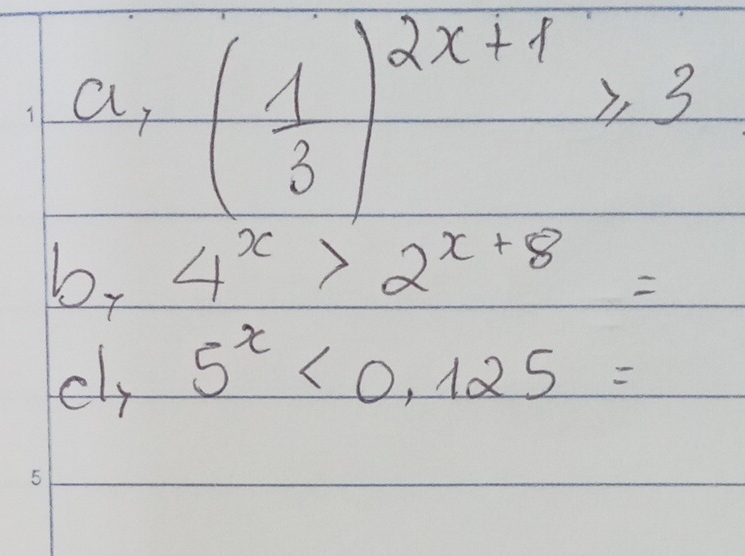 1 a, (1/3)^{2x+1} ⩾ 3
b, 4^x > 2^{x+8} =
d, 5^x < 0,125 =
5